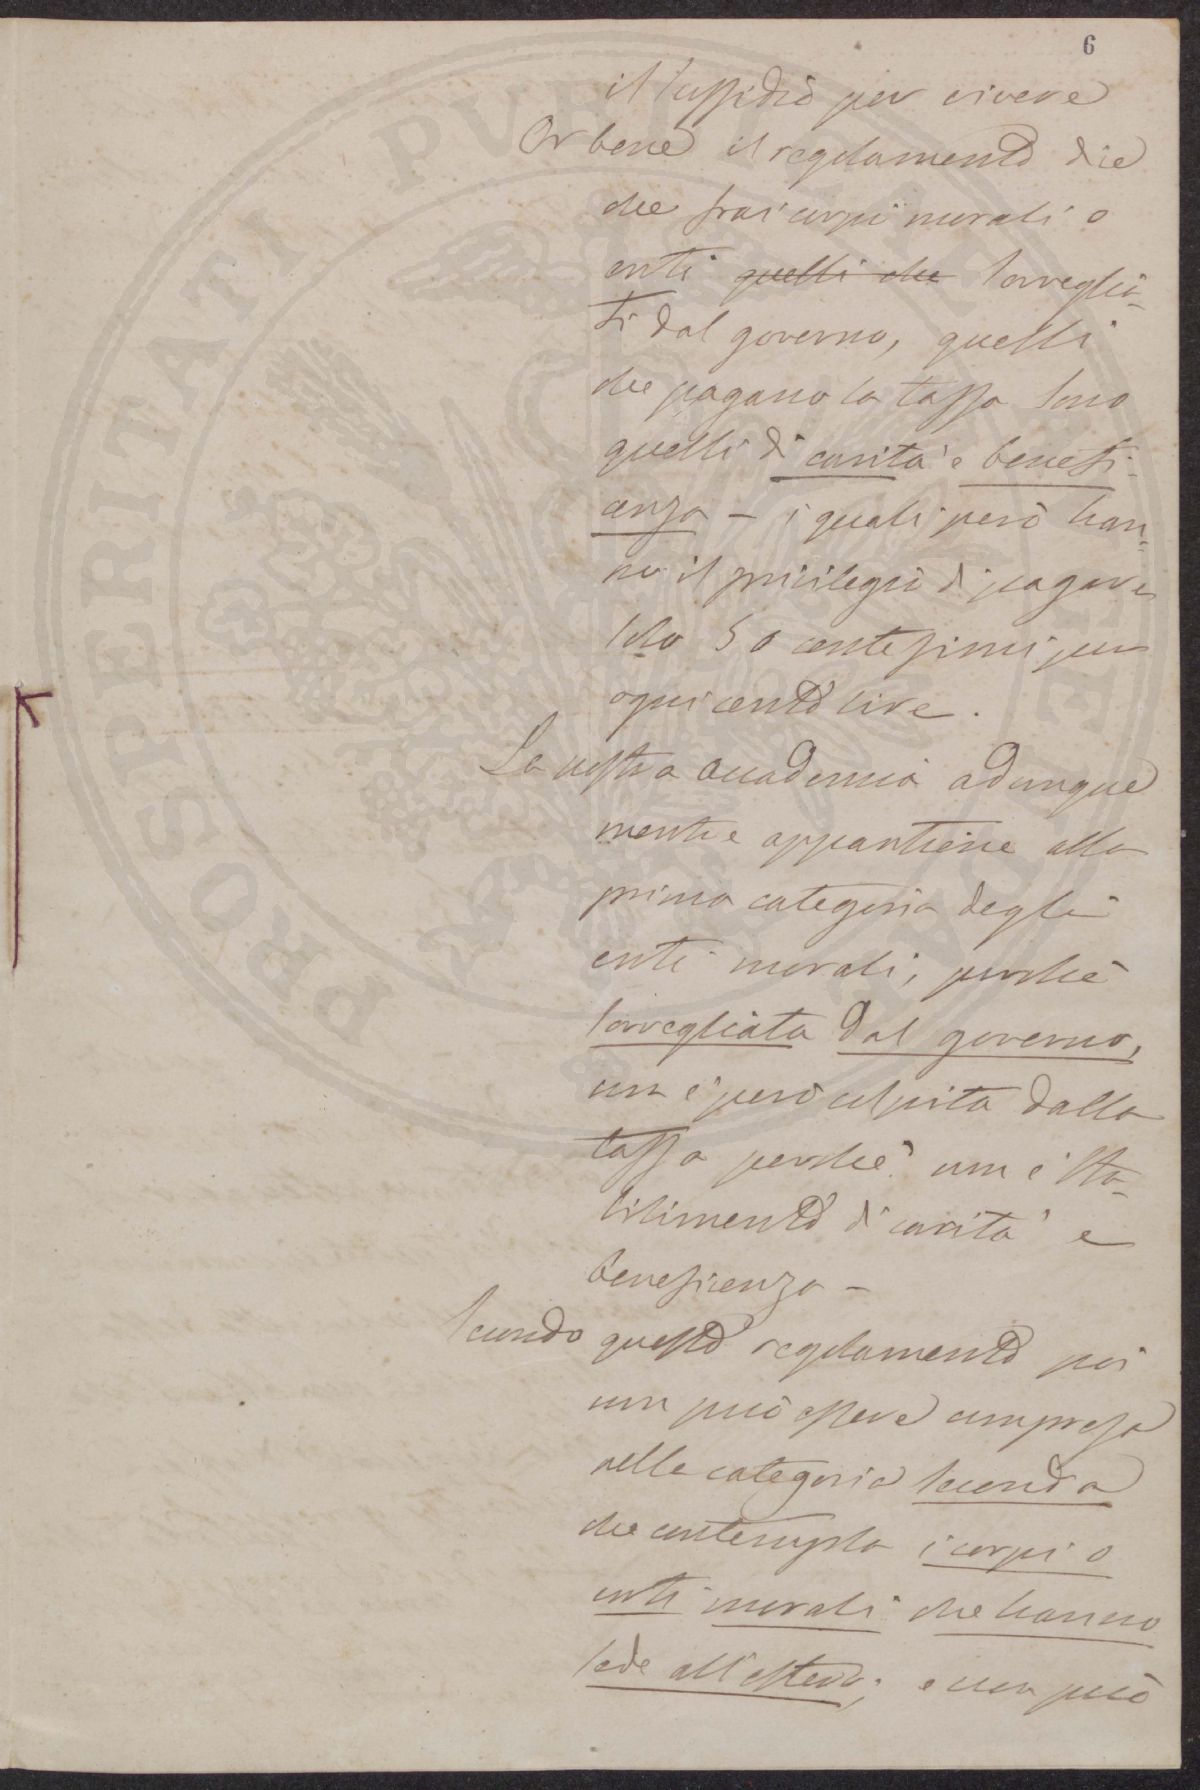 6
il sussidio per vivere
Or bene il regolamento dice
che frai corpi morali o
enti quelli che sorveglia-
ti dal governo, quelli
che pagano la tassa sono
quelli di carità e benefi-
cenza – i quali però han-
no il privilegio di pagare
solo 50 centesimi per
ogni cento lire.
La nostra accademia adunque
mentre appartiene alla
prima categoria degli
enti morali, perchè
sorvegliata dal governo,
non è però colpita dalla
tassa perchè non è sta-
bilimento di carità e
beneficenza –
Secondo questo regolamento poi
non può essere compresa
nella categoria seconda
che contempla i corpi o
enti morali che hanno
sede all'estero; e non può
PROSPERITATI PVBLICAE